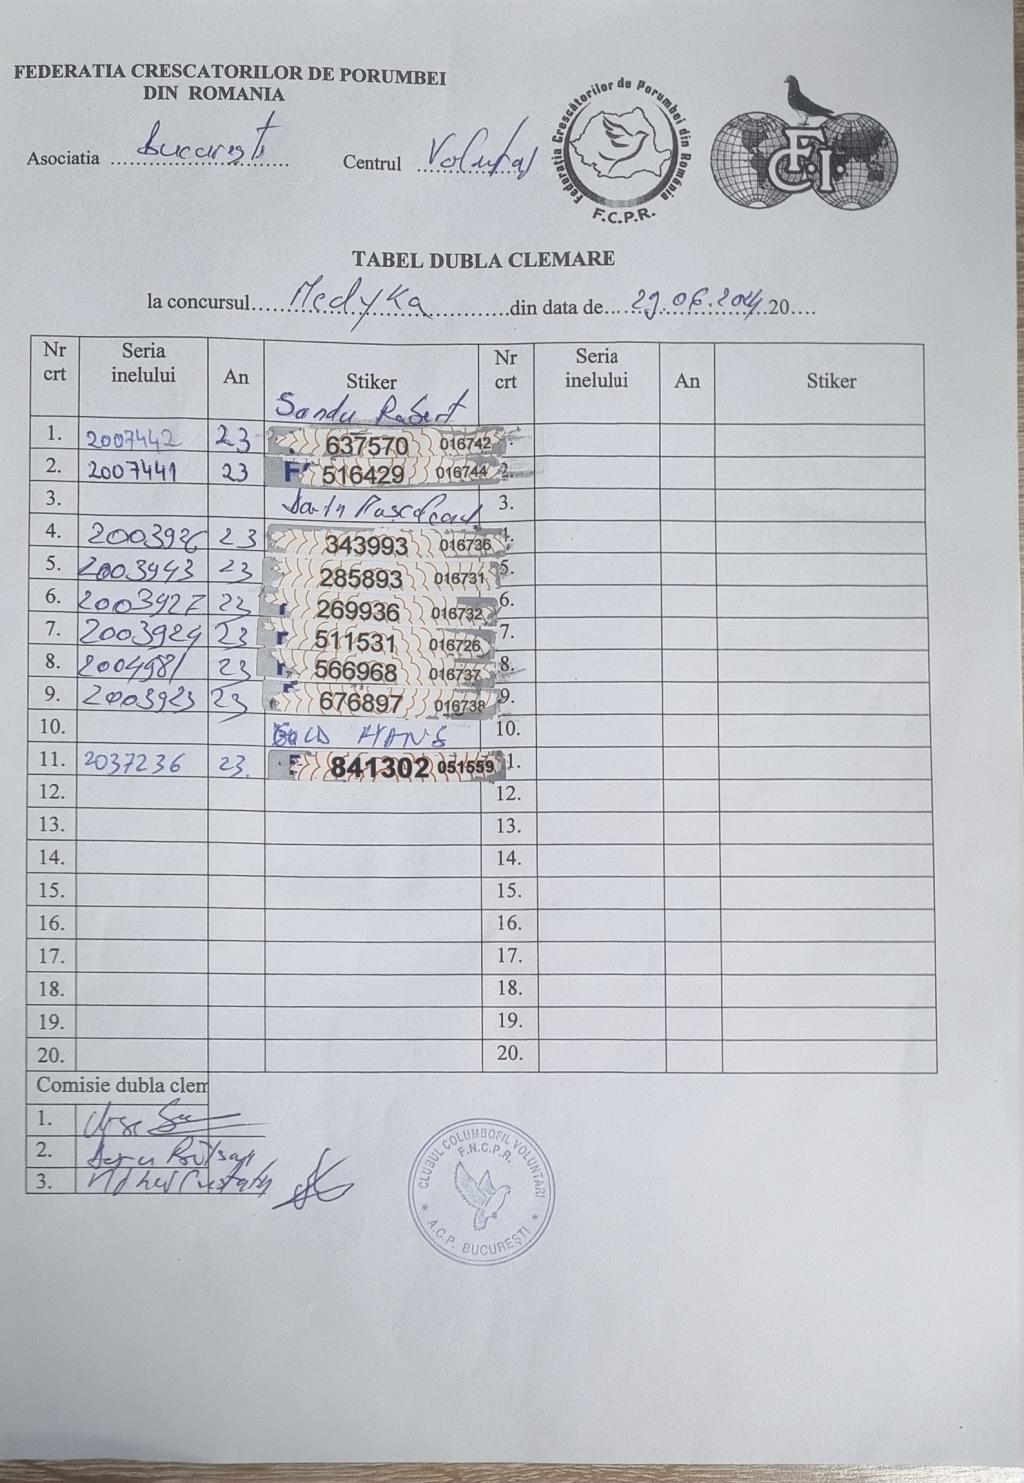 FEDERATIA CRESCATORILOR DE PORUMBEI
DIN ROMANIA
Asociatia Bucuresti Centrul
Federatia Crescătorilor de Porumbei din România
F.C.P.R.
F.C.I.
TABEL DUBLA CLEMARE
la concursul Medyka din data de 29.06.2024 20
Nr crt Seria inelului An Stiker Nr crt Seria inelului An Stiker
Sandu Robert
1. 2007442 23 637570 016742
2. 2007441 23 F 516429 016744 2.
3. 3.
4. 2003926 23 343993 016736 4.
5. 2003943 23 285893 016731 5.
6. 2003927 23 269936 016732 6.
7. 2003929 23 511531 016726 7.
8. 2004981 23 566968 016737 8.
9. 2003923 23 676897 016738 9.
10. HANS 10.
11. 2037236 23. 841302 051559 1.
12. 12.
13. 13.
14. 14.
15. 15.
16. 16.
17. 17.
18. 18.
19. 19.
20. 20.
Comisie dubla clem
1.
2.
3.
CLUBUL COLUMBOFIL VOLUNTARI
F.N.C.P.R.
* A.C.P. BUCUREȘTI *